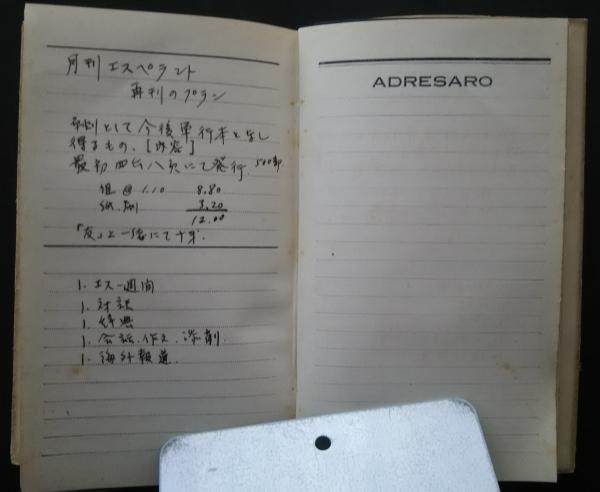 月刊エスペラント
再刊のプラン
原則として今後単行本となし
得るもの、[内容]
最初四六八頁にて発行. 500部
組@1.10 8.80
紙.刷 3.20
12.00
「友」と一緒にて十分.
1. エス一週間
1. 対訳
1. 辞典
1. 会話.作文.添削.
1. 海外報道.
ADRESARO